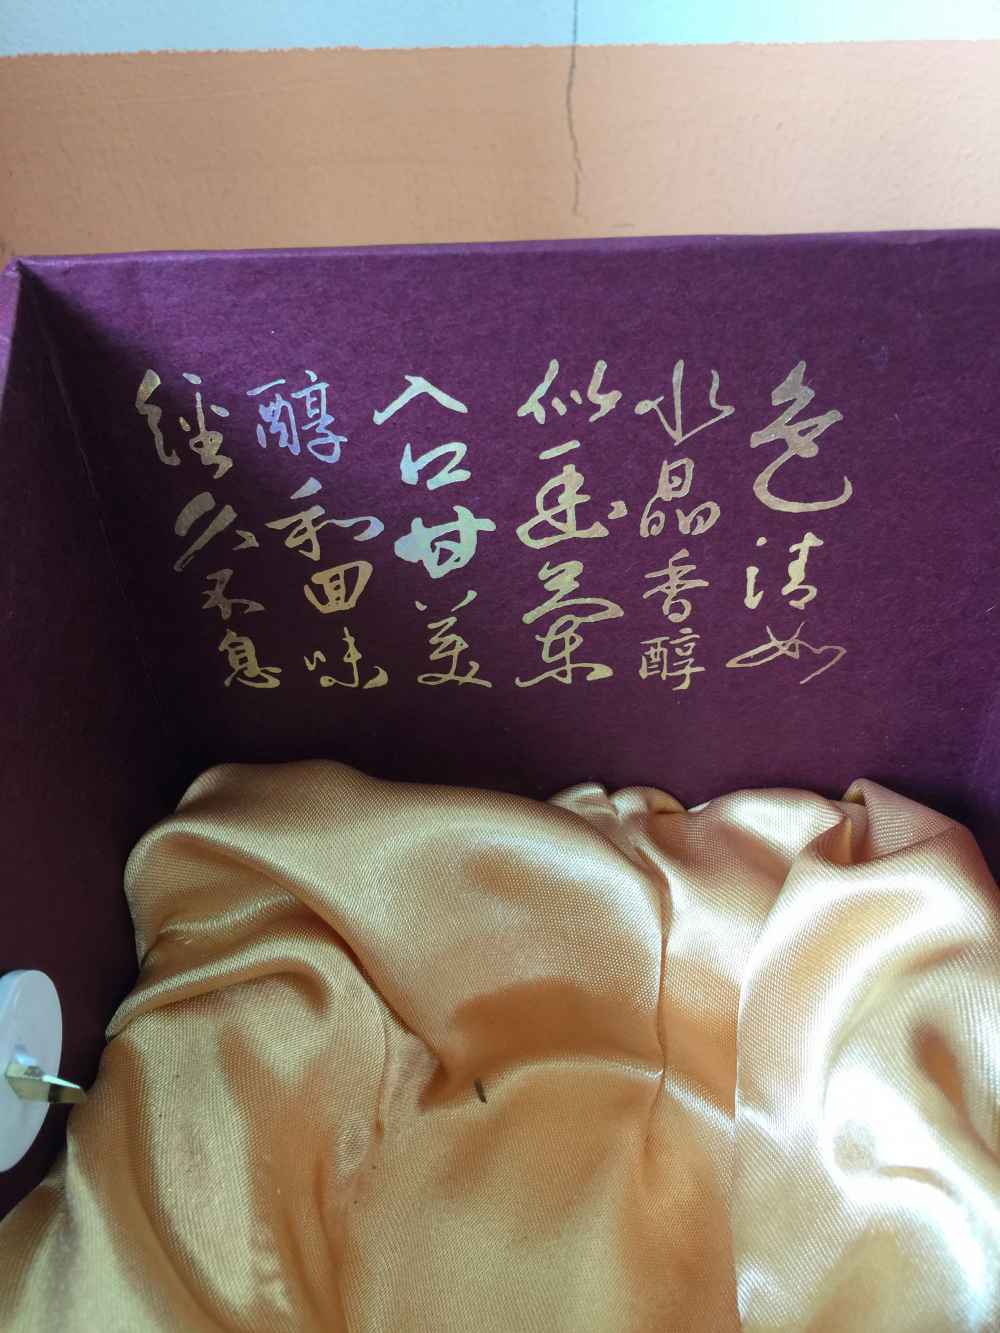 色清如
水晶香醇
似幽蘭
入口甘美
醇和回味
經久不息